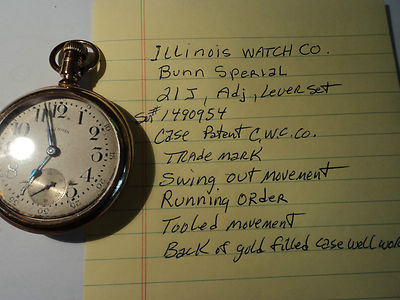 Illinois WATCH CO.
Bunn Sperial
21 J, Adj, Lever set
S# 1490954
Case Patent C.W.C. Co.
TRade mark
Swing out movement
Running ORder
Tooled movement
Back of gold filled case well wor
12